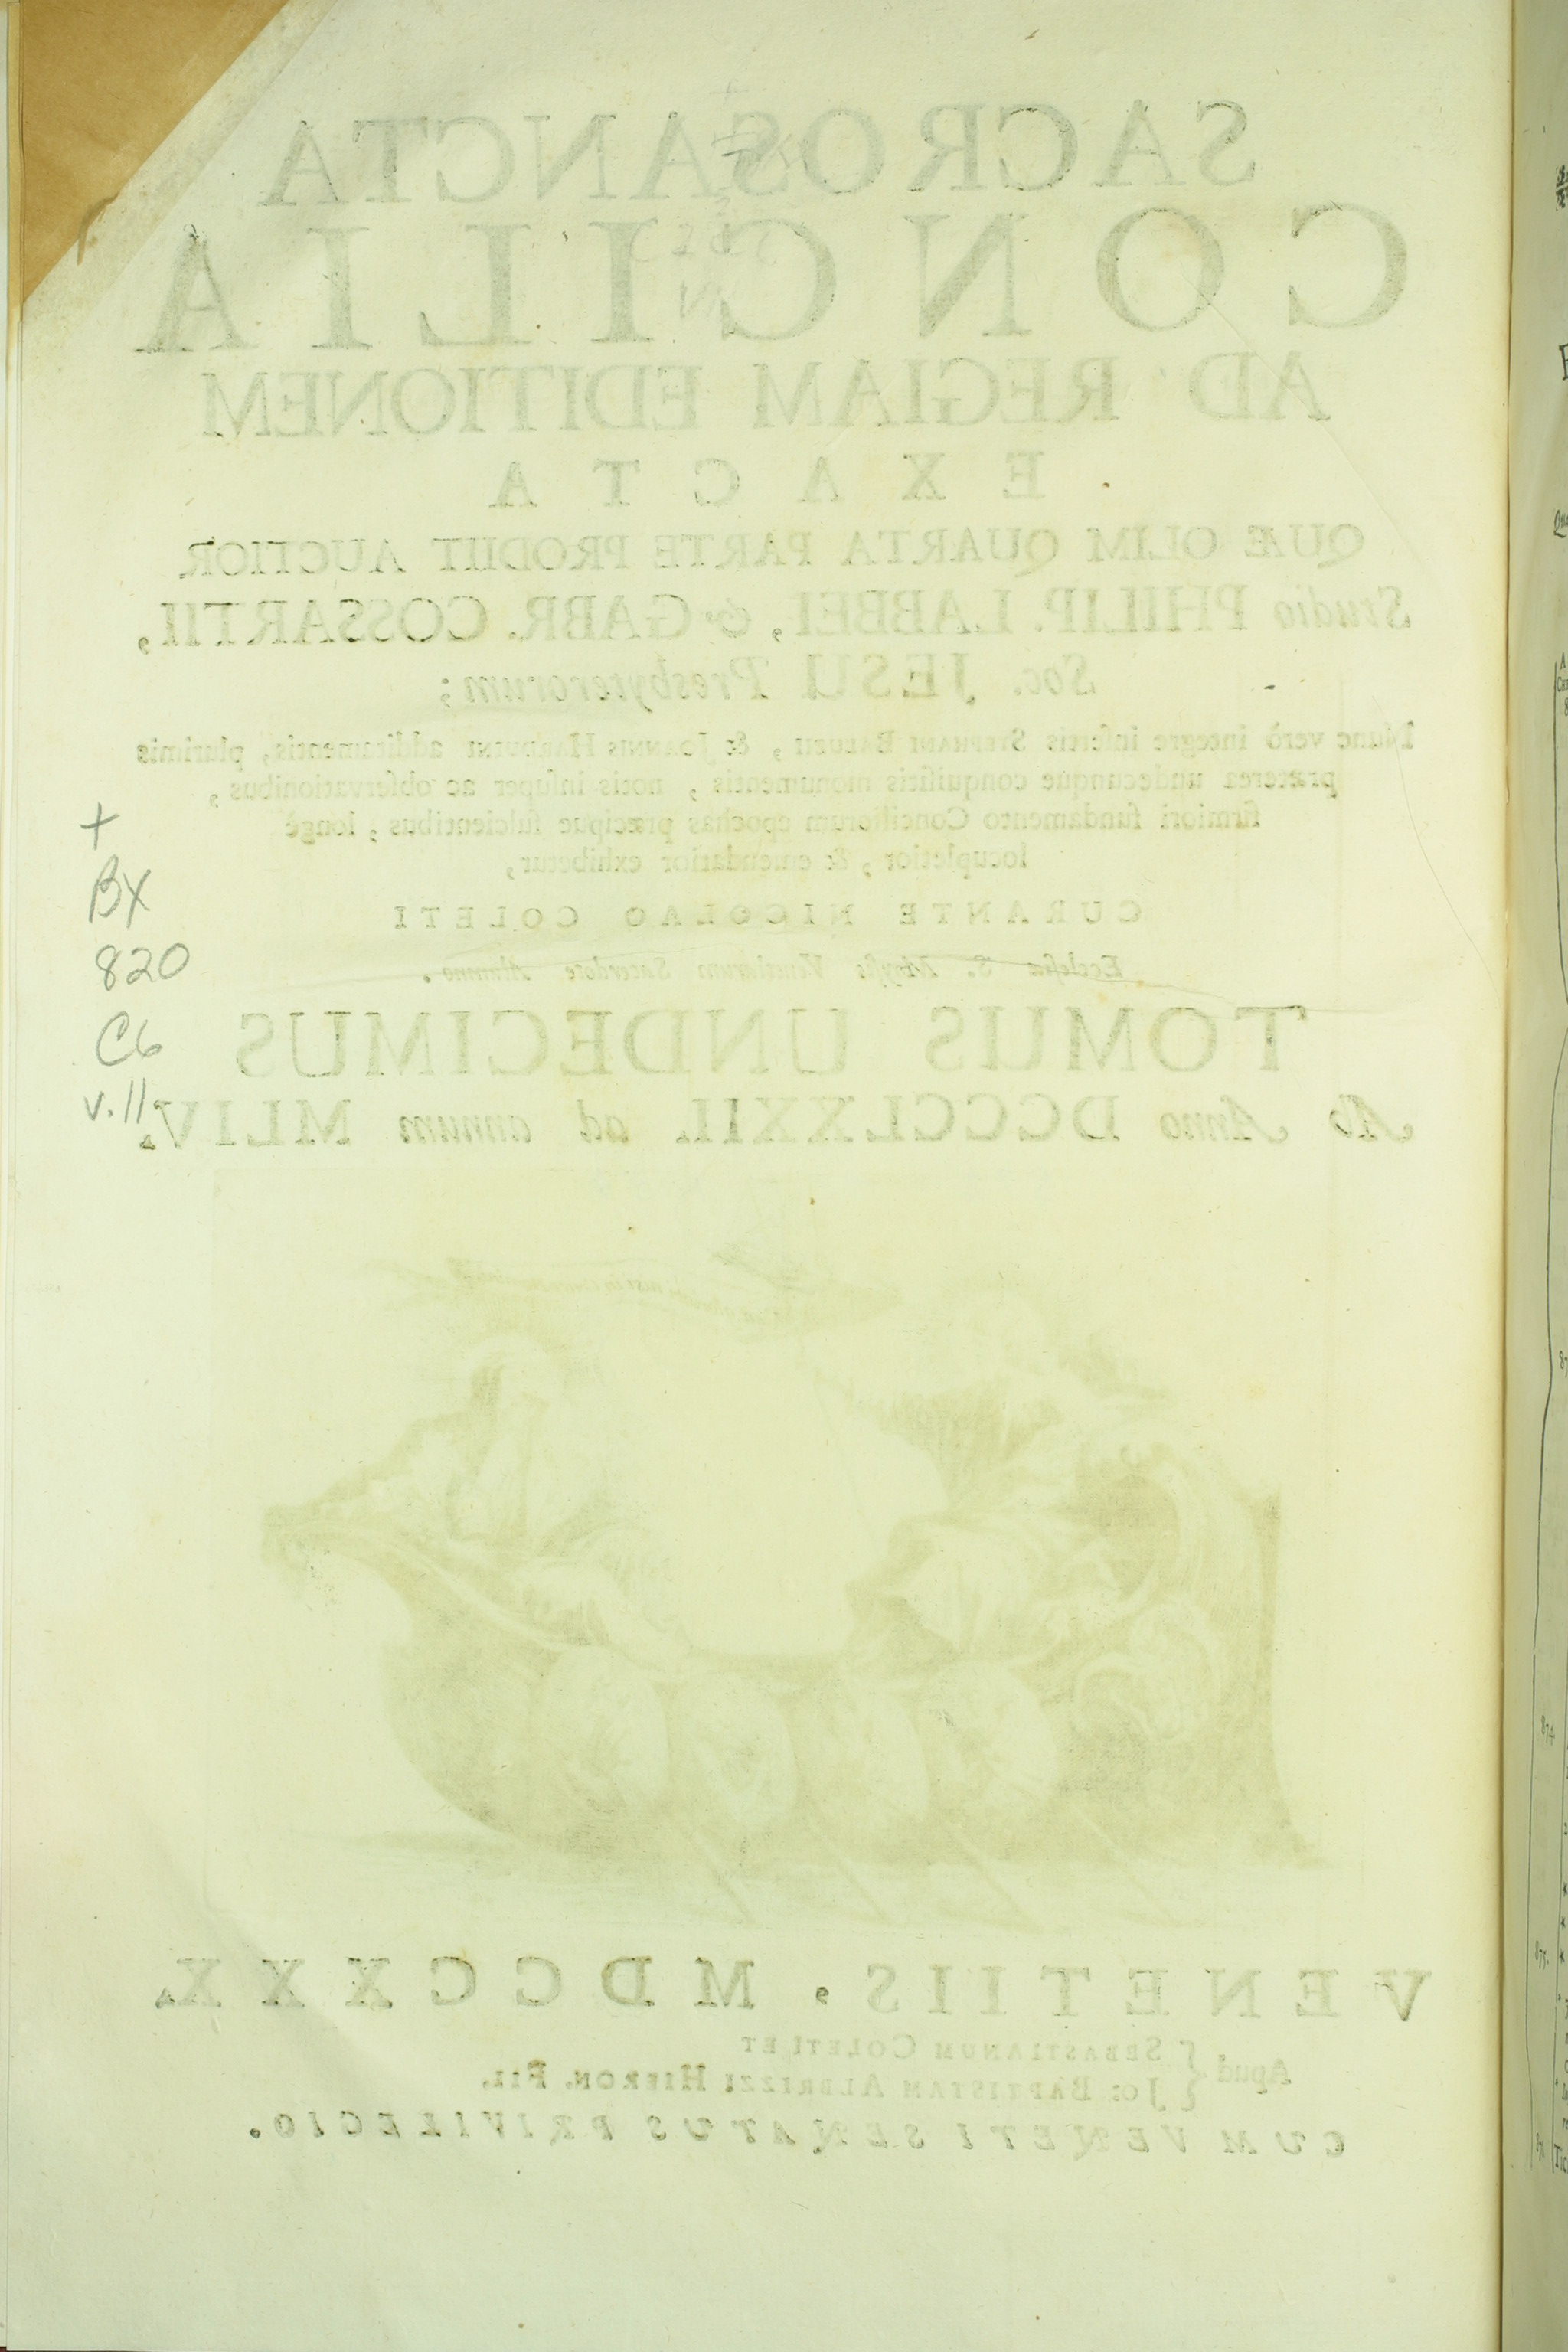 SACROSANCTA
CONCILIA
AD REGIAM EDITIONEM
EXACTA
QUÆ OLIM QUARTA PARTE PRODIIT AUCTIOR
Studio PHILIP. LABBEI, & GABR. COSSARTII,
Soc. JESU Presbyterorum;
Nunc verò integre insertis STEPHANI BALUZII, & JOANNIS HARDUINI additamentis, plurimis
præterea undecunque conquisitis monumentis, notis insuper ac observationibus,
firmiori fundamento Conciliorum epochas præcipue fulcientibus, longè
locupletior, & emendatior exhibetur,
CURANTE NICOLAO COLETI
Ecclesiæ S. Moysis Venetiarum Sacerdote Alumno.
TOMUS UNDECIMUS
Ab Anno DCCCLXXII. ad annum MLIV.
+
BX
820
C6
v.11
VENETIIS, MDCCXXX.
Apud { SEBASTIANUM COLETI ET
{ JO: BAPTISTAM ALBRIZZI HIERON. FIL.
CUM VENETI SENATUS PRIVILEGIO.